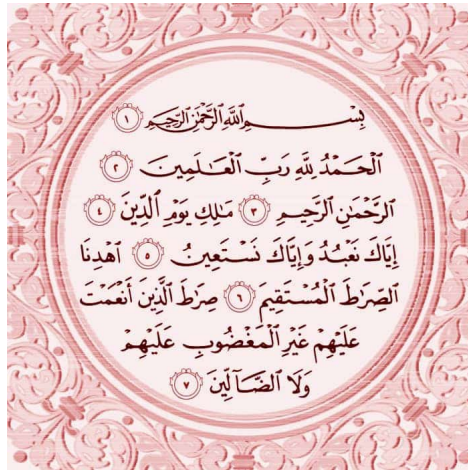 بِسْمِ اللَّهِ الرَّحْمَٰنِ الرَّحِيمِ ۝١
الْحَمْدُ لِلَّهِ رَبِّ الْعَالَمِينَ ۝٢
الرَّحْمَٰنِ الرَّحِيمِ ۝٣ مَالِكِ يَوْمِ الدِّينِ ۝٤
إِيَّاكَ نَعْبُدُ وَإِيَّاكَ نَسْتَعِينُ ۝٥ اهْدِنَا
الصِّرَٰطَ الْمُسْتَقِيمَ ۝٦ صِرَٰطَ الَّذِينَ أَنْعَمْتَ
عَلَيْهِمْ غَيْرِ الْمَغْضُوبِ عَلَيْهِمْ
وَلَا الضَّآلِّينَ ۝٧